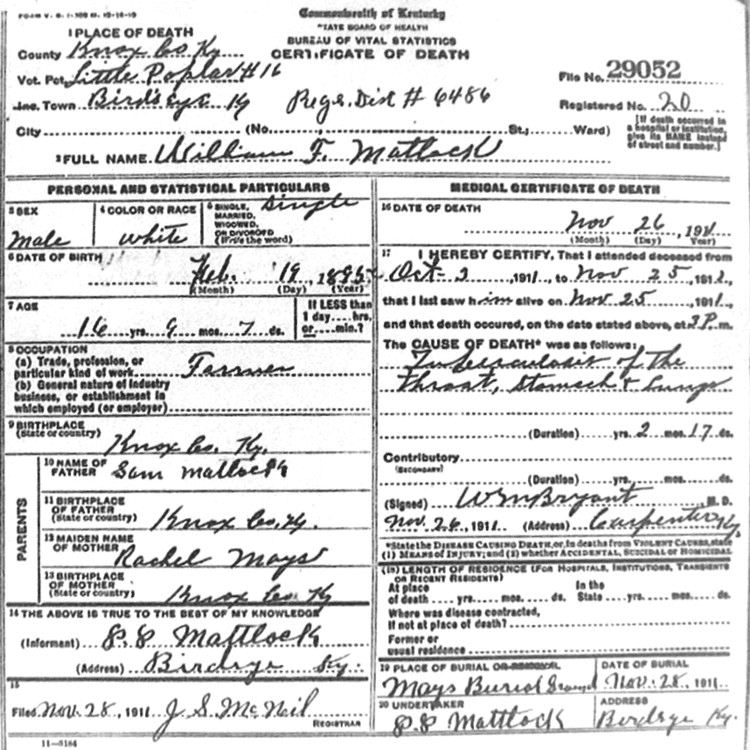 FORM V. S. 1-100 M. 10-16-10
Commonwealth of Kentucky
STATE BOARD OF HEALTH
BUREAU OF VITAL STATISTICS
CERTIFICATE OF DEATH
1 PLACE OF DEATH
County Knox Co Ky
Vot. Pct. Little Poplar #16
Inc. Town Birdseye Ky Regs. Dist # 6486
City (No. St.; Ward)
File No. 29052
Registered No. 20
[If death occurred in a hospital or institution, give its NAME instead of street and number.]
2 FULL NAME William F. Matlock
PERSONAL AND STATISTICAL PARTICULARS
3 SEX
Male
4 COLOR OR RACE
White
5 SINGLE, MARRIED, WIDOWED, OR DIVORCED (Write the word)
Single
6 DATE OF BIRTH
Feb. 19 1895
(Month) (Day) (Year)
7 AGE
16 yrs. 9 mos. 7 ds.
If LESS than 1 day....hrs. or....min.?
8 OCCUPATION
(a) Trade, profession, or particular kind of work Farmer
(b) General nature of industry business, or establishment in which employed (or employer)
9 BIRTHPLACE
(State or country) Knox Co. Ky.
PARENTS
10 NAME OF FATHER Sam Matlock
11 BIRTHPLACE OF FATHER
(State or country) Knox Co. Ky.
12 MAIDEN NAME OF MOTHER Rachel Mays
13 BIRTHPLACE OF MOTHER
(State or country) Knox Co Ky
14 THE ABOVE IS TRUE TO THE BEST OF MY KNOWLEDGE
(Informant) P.P Mattlock
(Address) Birdseye Ky.
15
Filed Nov. 28, 1911 J S McNeil
REGISTRAR
11-3184
MEDICAL CERTIFICATE OF DEATH
16 DATE OF DEATH
Nov 26, 1911
(Month) (Day) (Year)
17 I HEREBY CERTIFY, That I attended deceased from
Oct 2, 1911, to Nov 25, 1911,
that I last saw him alive on Nov 25, 1911,
and that death occured, on the date stated above, at 3 P.m.
The CAUSE OF DEATH* was as follows:
Tuberculosis of the
Throat, Stomach & Lungs
(Duration) yrs. 2 mos. 17 ds.
Contributory
(SECONDARY)
(Duration) yrs. mos. ds.
(Signed) WmBryant M. D.
Nov. 26, 1911 (Address) Carpenter Ky.
*State the DISEASE CAUSING DEATH, or, in deaths from VIOLENT CAUSES, state
(1) MEANS OF INJURY; and (2) whether ACCIDENTAL, SUICIDAL OR HOMICIDAL
(18) LENGTH OF RESIDENCE (FOR HOSPITALS, INSTITUTIONS, TRANSIENTS OR RECENT RESIDENTS)
At place of death yrs. mos. ds. In the State yrs. mos. ds.
Where was disease contracted,
if not at place of death?
Former or
usual residence
19 PLACE OF BURIAL OR REMOVAL
Mays Burial Ground
DATE OF BURIAL
Nov. 28, 1911
20 UNDERTAKER
P.P Mattlock
ADDRESS
Birdseye Ky.